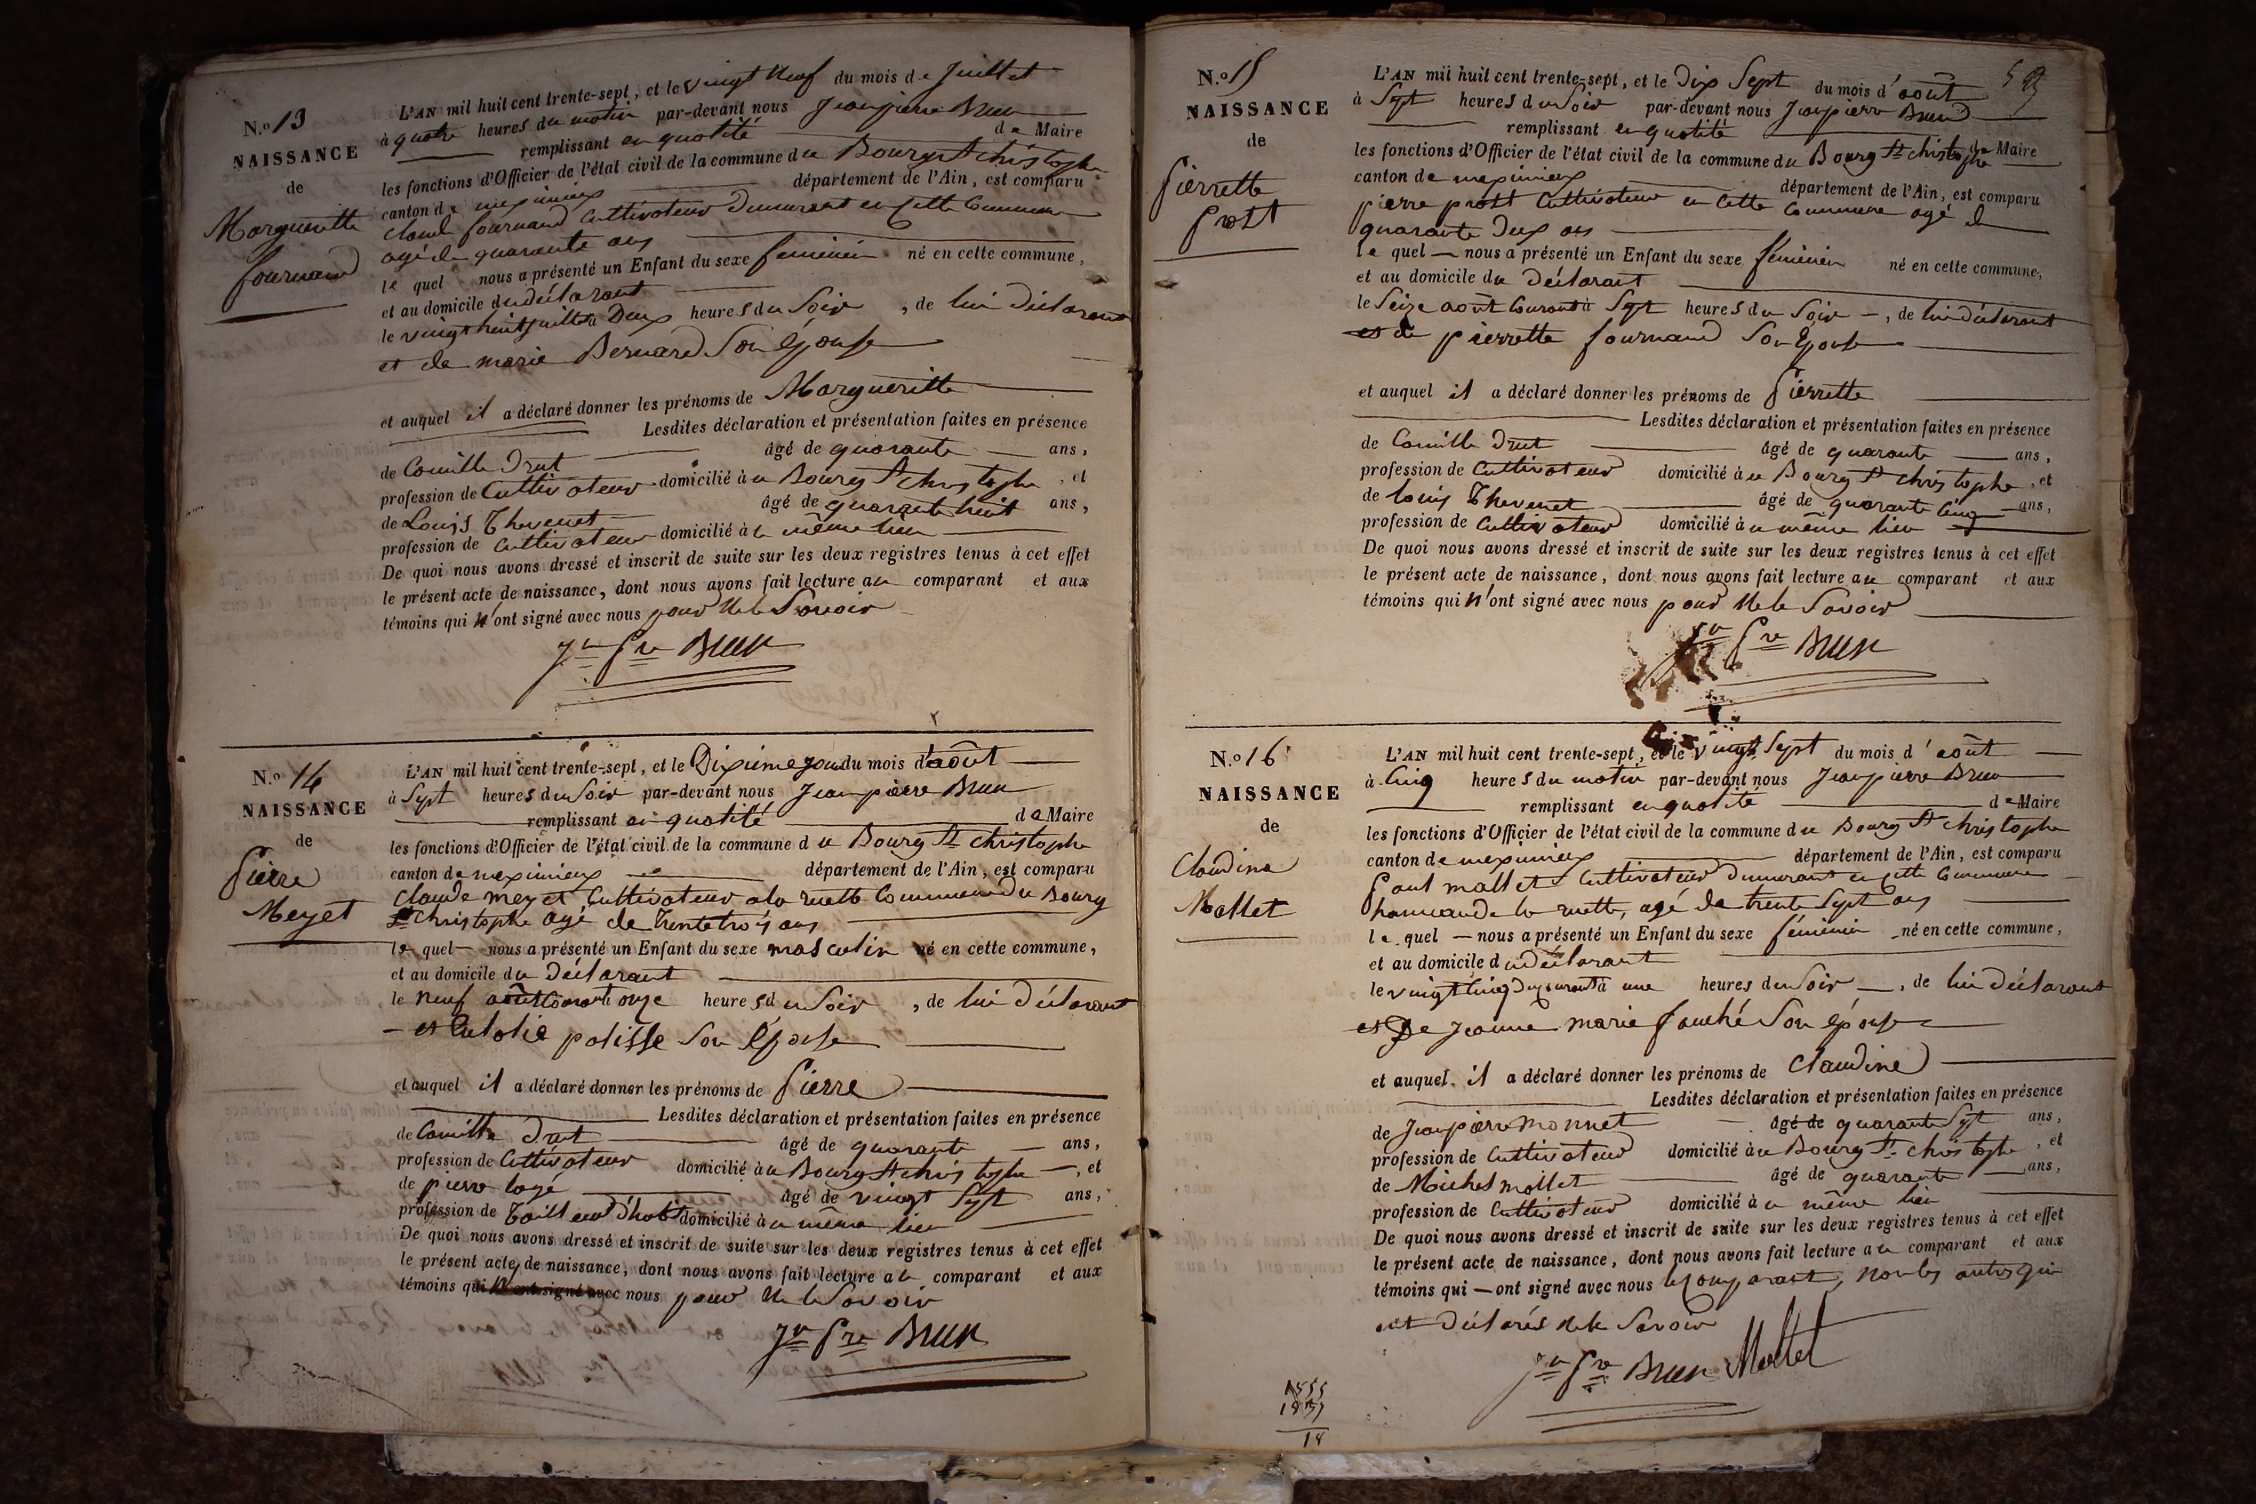 N.o 13
NAISSANCE
de
Margueritte
fournand
L'AN mil huit cent trente-sept, et le vingt neuf du mois de Juillet
à quatre heures du matin par-devant nous Jean pierre Brun
remplissant en qualité de Maire
les fonctions d'Officier de l'état civil de la commune du Bourg St christophe
canton de meximieux département de l'Ain, est comparu
claude fournand Cultivateur Demeurant en Cette Commune
agé de quarante ans
le quel nous a présenté un Enfant du sexe feminin né en cette commune,
et au domicile du déclarant
le vingt huit juillet à Deux heures du Soir, de lui Déclarant
et de marie Bernard Son épouse
et auquel il a déclaré donner les prénoms de Margueritte
Lesdites déclaration et présentation faites en présence
de Camille Drut âgé de quarante ans,
profession de Cultivateur domicilié à u Bourg St christophe, et
de Louis Thevenet âgé de quarante huit ans,
profession de Cultivateur domicilié à u même lieu
De quoi nous avons dressé et inscrit de suite sur les deux registres tenus à cet effet
le présent acte de naissance, dont nous avons fait lecture au comparant et aux
témoins qui n'ont signé avec nous pour Ne le Savoir
Jn Pre Brun
N.o 14
NAISSANCE
de
Pierre
Meyet
L'AN mil huit cent trente-sept, et le Dixieme jour du mois d'août
à Sept heures du Soir par-devant nous Jean pierre Brun
remplissant en qualité de Maire
les fonctions d'Officier de l'état civil de la commune du Bourg St christophe
canton de meximieux département de l'Ain, est comparu
claude meyet Cultivateur a la ruette Commune du Bourg
St christophe agé de trente trois ans
le quel nous a présenté un Enfant du sexe masculin né en cette commune,
et au domicile du Déclarant
le neuf août Courant à onze heures du Soir, de lui Déclarant
et polisse Son épouse
et auquel il a déclaré donner les prénoms de Pierre
Lesdites déclaration et présentation faites en présence
de Camille Drut âgé de quarante ans,
profession de Cultivateur domicilié à u Bourg St christophe, et
de pierre logé âgé de vingt Sept ans,
profession de Tailleur d'habit domicilié à u même lieu
De quoi nous avons dressé et inscrit de suite sur les deux registres tenus à cet effet
le présent acte de naissance, dont nous avons fait lecture au comparant et aux
témoins qui n'ont signé avec nous pour Ne le Savoir
Jn Pre Brun
N.o 15
NAISSANCE
de
Pierrette
Prost
L'AN mil huit cent trente-sept, et le Dix Sept du mois d'août
à Sept heures du Soir par-devant nous Jean pierre Brun
remplissant en qualité de Maire
les fonctions d'Officier de l'état civil de la commune du Bourg St christophe
canton de meximieux département de l'Ain, est comparu
pierre prost Cultivateur en Cette Commune agé de
quarante Deux ans
le quel nous a présenté un Enfant du sexe féminin né en cette commune,
et au domicile du Déclarant
le Seize août Courant à Sept heures du Soir, de lui déclarant
et de pierrette fournand Son Epouse
et auquel il a déclaré donner les prénoms de Pierrette
Lesdites déclaration et présentation faites en présence
de Camille Drut âgé de quarante ans,
profession de Cultivateur domicilié à u Bourg St christophe, et
de louis Thevenet âgé de quarante Cinq ans,
profession de Cultivateur domicilié à u même lieu
De quoi nous avons dressé et inscrit de suite sur les deux registres tenus à cet effet
le présent acte de naissance, dont nous avons fait lecture au comparant et aux
témoins qui n'ont signé avec nous pour Ne le Savoir
Jn Pre Brun
N.o 16
NAISSANCE
de
Claudine
Mollet
L'AN mil huit cent trente-sept, et le vingt Sept du mois d'août
à Cinq heures du matin par-devant nous Jean pierre Brun
remplissant en qualité de Maire
les fonctions d'Officier de l'état civil de la commune du Bourg St christophe
canton de meximieux département de l'Ain, est comparu
Paul mollet Cultivateur Demeurant en Cette Commune
hameau de la ruette, agé de trente Sept ans
le quel nous a présenté un Enfant du sexe féminin né en cette commune,
et au domicile du déclarant
le vingt Cinq du courant à une heures du Soir, de lui Déclarant
et De Jeanne marie fouché Son épouse
et auquel il a déclaré donner les prénoms de Claudine
Lesdites déclaration et présentation faites en présence
de Jean pierre monnet âgé de quarante Sept ans,
profession de Cultivateur domicilié à u Bourg St christophe, et
de Michel mollet âgé de quarante ans,
profession de Cultivateur domicilié à u même lieu
De quoi nous avons dressé et inscrit de suite sur les deux registres tenus à cet effet
le présent acte de naissance, dont nous avons fait lecture au comparant et aux
témoins qui ont signé avec nous le Comparant, Non les autres qui
ont Déclarés Ne le Savoir
Jn Pre Brun Mollet
1855
1837
18